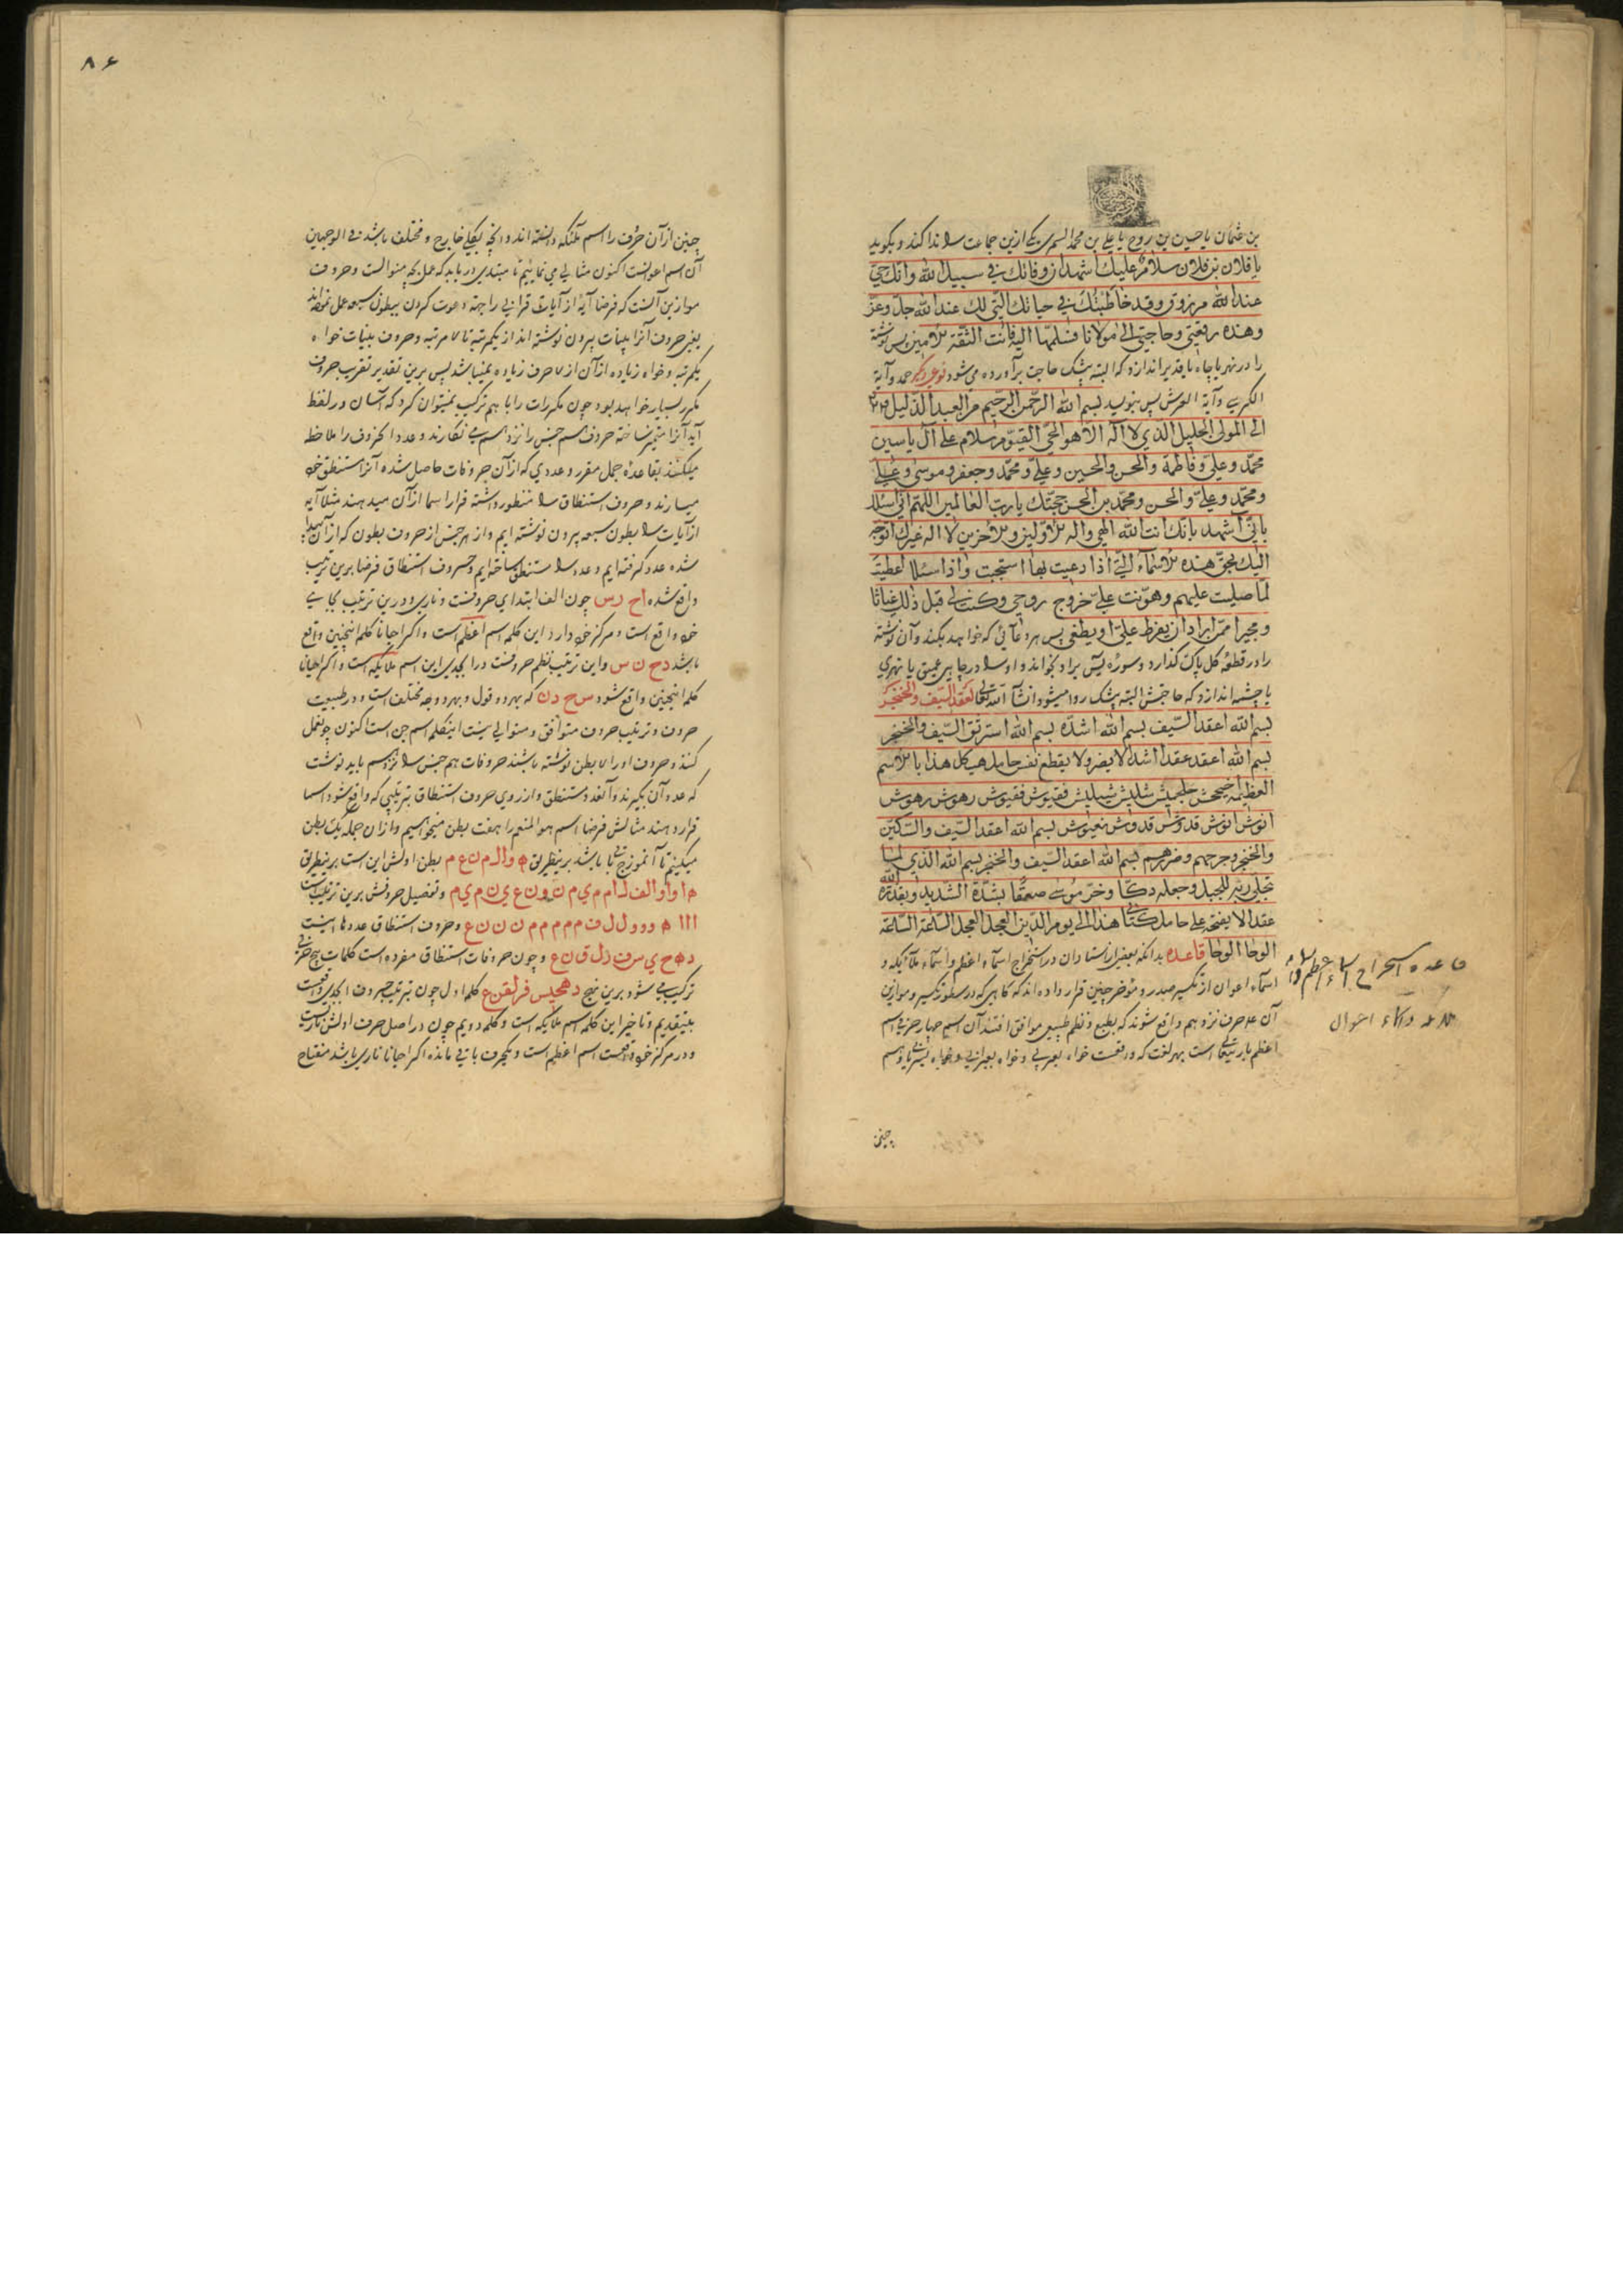 بن عثمان یا حسین بن روح یا علی بن محمد السمری یکی ازین جماعت را ندا کند و بگوید
یا فلان بن فلان سلام علیک اشهد ان وفاتک فی سبیل الله وانک حی
عند الله مرزوق وقد خاطبتک فی حیاتک التی لک عند الله جل وعز
وهذه رقعتی وحاجتی الی مولانا فسلمها الیه فانت الثقة الامین پس نوشته
را در نهر یا چاه یا غدیر اندازد که البته بیشک حاجت برآورده می شود نوع دیگر حمد وآیة
الکرسی وآیة العرش پس بنویسد بسم الله الرحمن الرحیم من العبد الذلیل
الی المولی الجلیل الذی لا اله الا هو الحی القیوم سلام علی آل یاسین
محمد وعلی وفاطمة والحسن والحسین وعلی ومحمد وجعفر وموسی وعلی
ومحمد وعلی والحسن ومحمد بن الحسن حجتک یا رب العالمین اللهم انی اسئلک
بانی اشهد بانک انت الله الهی واله الاولین والاخرین لا اله غیرک اتوجه
الیک بحق هذه الاسماء التی اذا دعیت بها استجبت واذا سئلت اعطیت
لما صلیت علیهم وهونت علی خروج روحی وکنت لی قبل ذلک غیاثا
ومجیرا ممن اراد ان یفرط علی او یطغی پس هر دعائی که خواهد بکند وآن نوشته
را در قطعه گل پاک گذارد وسوره یس برا و بخواند و او را در چاهی عمیق یا نهری
یا چشمه اندازد که حاجتش البته بیشک روا میشود انشآ الله تعالی لعقد السیف والخنجر
بسم الله اعقد السیف بسم الله اشده بسم الله استرنق السیف والخنجر
بسم الله اعقد عقدا اشد لا یضر ولا یقطع نفس حامل هیکل هذا بالاسم
انوش انوش قدوش قدوش نعیوش بسم الله اعقد السیف والسکین
والخنجر وجرحهم وضرهم بسم الله اعقد السیف والخنجر بسم الله الذی لما
تجلی ربه للجبل وجعله دکا وخر موسی صعقا بشدة الشدید وبقدرة الله
عقدا لا یفتح علی حامل کتابی هذا الی یوم الدین العجل العجل الساعة الساعة
الوحا الوحا قاعده بدانکه بعضی از استادان در استخراج اسماء اعظم واسماء ملائکه و
اسماء اعوان از تکسیر صدر و مؤخر چنین قرار داده اند که گاهی که در سطور تکسیر و موازین
آن حرف نزد هم واقع شوند که بطبع و نظم طبیعی موافق افتند آن اسم چهار حرفی اسم
اعظم باریتعالی است بهر لغت که واقعست خواه بعربی وخواه بعبرانی وخواه بسریانی
چنین
قاعده استخراج اسماء اعظم
ملائکه واسماء اعوان
۸۶
چنین از آن حرف را اسم ملئکه دانسته اند وانچه بکلی خارج و مختلف باشد فی الوجهین
آن اسم اعوانست اکنون مثالی می نمائیم تا مبتدی دریابد که عمل بچه منوالست وحروف
موازین آنست که فرضا آیهٔ از آیات قرانی را جهة دعوت کردن ببطون سبعه عمل نموده اند
یعنی حروف آنرا بینات بیرون نوشته اند از یکمرتبه تا ۷ مرتبه وحروف بینات خواه
یکمرتبه وخواه زیاده از آن از ۷ حرف زیاده نمیباشد پس برین تقدیر تقریب حروف
مکرر بسیار خواهد بود چون مکررات را با هم ترکیب نمیتوان کرد که آسان در لفظ
آید آنرا متمیز ساخته حروف هم جنس را نزد هم می نگارند وعدد انحروف را ملاحظه
میکنند بقاعده جمل مقرر وعددی که از آن حروفات حاصل شده آنرا مستنطق خود
میسازند وحروف استنطاق را منظور داشته قرار اسما از آن میدهند مثلا آیه
از آیات را بطون سبعه بیرون نوشته ایم واز هر جنس از حروف بطون که از آن پیدا
شده عدد گرفته ایم وعدد را مستنطق ساخته ایم وحروف استنطاق فرضا برین ترتیب
واقع شده اح دس چون الف ابتدای حروفست وناری ودرین ترتیب بجای
خود واقع است ومرکز خود دارد این کلمه اسم اعظم است واگر احیانا کلمه اینچنین واقع
باشد دح ن س واین ترتیب نظم حروفست در ابجد پس این اسم ملائکه است واگر احیانا
کلمه اینچنین واقع شود س ح د ن که بهر دو قول وبهر دو وجه مختلف است ودر طبیعت
حروف وترتیب حروف متوافق ومتوالی نیست اینکلمه اسم جن است اکنون چو عمل
کنند وحروف اورا ۷ بطن نوشته باشند حروفات هم جنس را نزد هم باید نوشت
که عدد آن بگیرند وآنعدد مستنطق واز روی حروف استنطاق بترتیبی که واقع شود اسما
قرار دهند مثالش فرضا اسم هو المنعم را هفت بطن میخواهیم واز ان جمله یک بطن
میکنیم تا آنموزج باشد برینطریق ه و ال م ن ع م بطن اولش این است برینطریق
ه ا و ا و ا ل ف ل ا م م ی م ن و ن ع ی ن م ی م وتفصیل حروفش برین ترتیب است
ا ا ا ا ه و و و ل ل ف م م م م م م ن ن ن ن ع وحروف استنطاق عددها اینست
د ه ح ی س ف ر ل ق ن ع وچون حروفات استنطاق مفرده است کلمات پنج حرفی
ترکیب می شود برین نهج دهحیس فرلقنع کلمه اول چون بترتیب حروف ابجدی واقعست
بیتقدیم وتاخیر این کلمه اسم ملائکه است وکلمه دویم چون در اصل حرف اولش ناریست
ودر مرکز خود واقعست اسم اعظم است ویکحرف باقی مانده اگر احیانا ناری باشد مفتاح